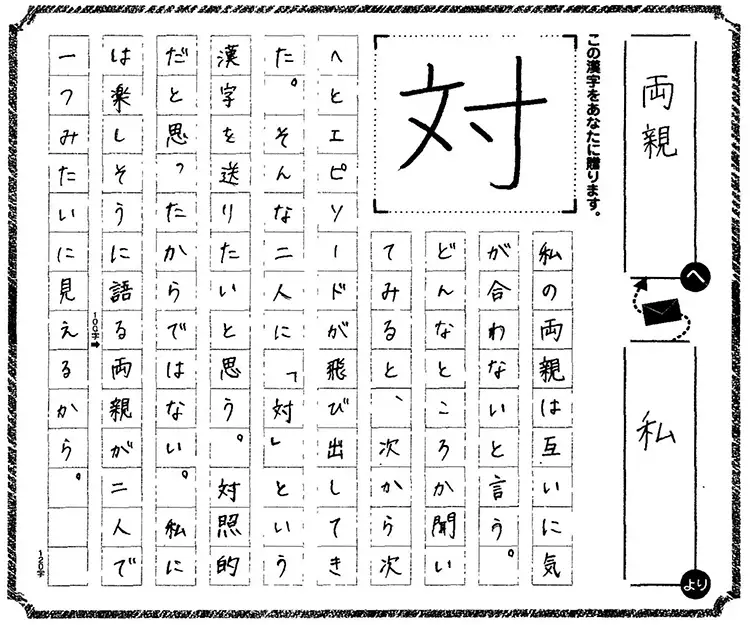 両親
へ
私
より
この漢字をあなたに贈ります。
対
私の両親は互いに気
が合わないと言う。
どんなところか聞い
てみると、次から次
へとエピソードが飛び出してき
た。そんな二人に「対」という
漢字を送りたいと思う。対照的
だと思ったからではない。私に
は楽しそうに語る両親が二人で
100字
一つみたいに見えるから。
120字